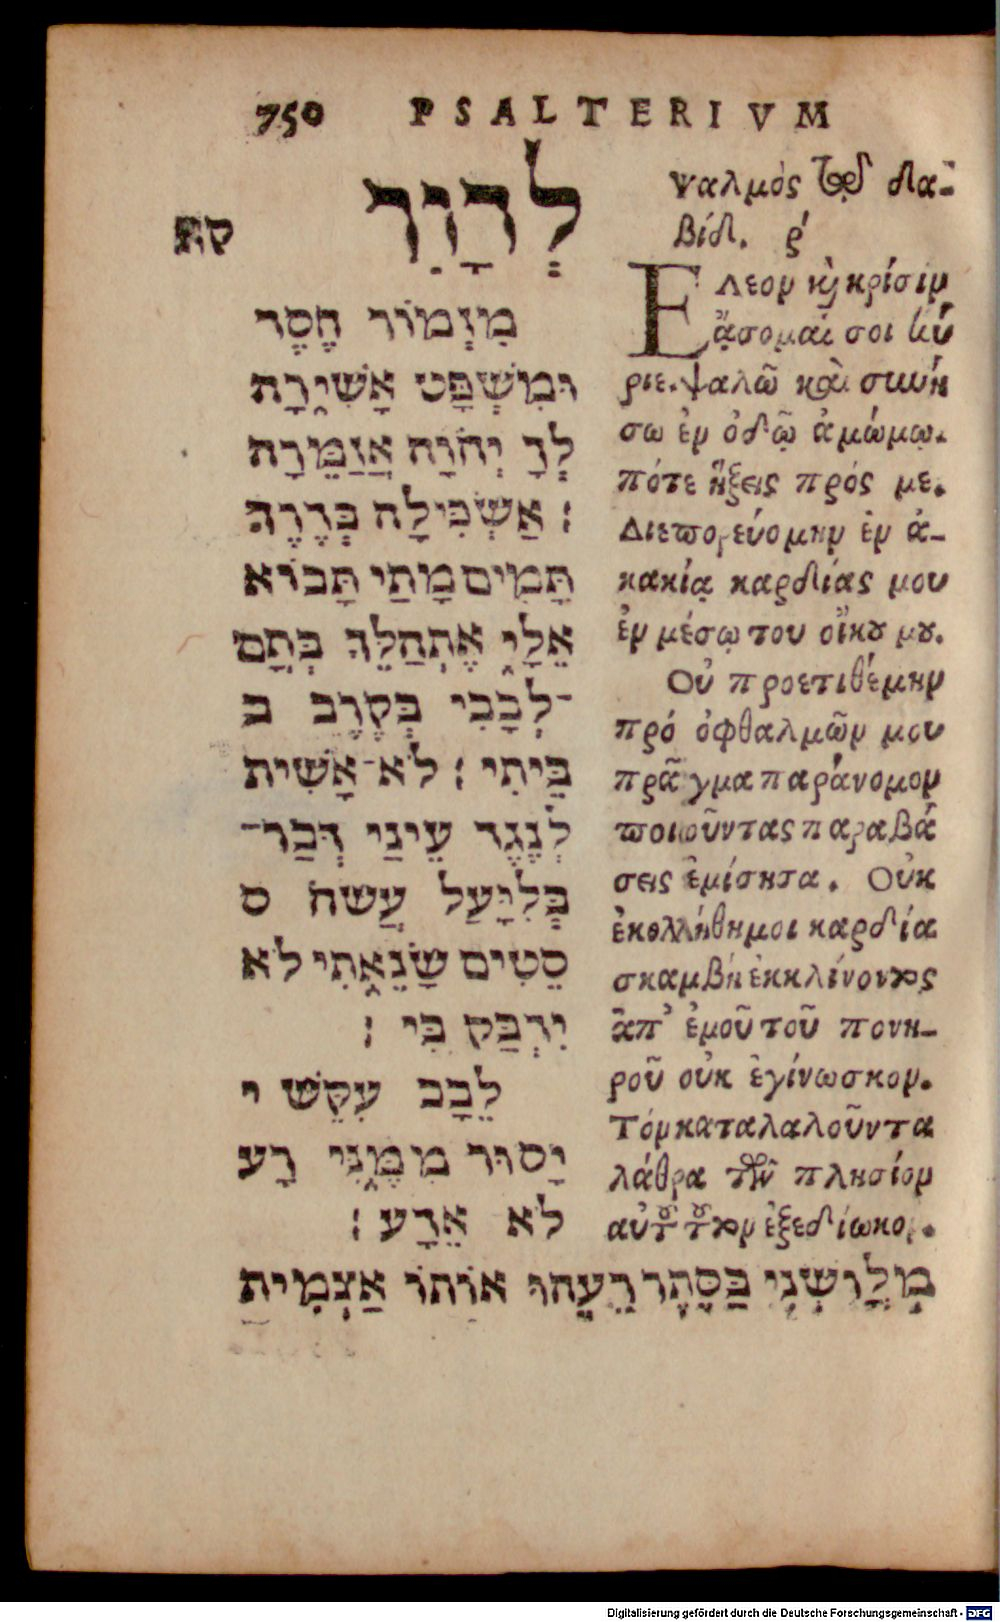 750 PSALTERIVM
לְדָוִד
קא
מִזְמוֹר חֶסֶד
וּמִשְׁפָּט אָשִׁירָה
לְךָ יְהוָה אֲזַמֵּרָה
׃ אַשְׂכִּילָה בְּדֶרֶךְ
תָּמִים מָתַי תָּבוֹא
אֵלָי אֶתְהַלֵּךְ בְּתָם
־לְבָבִי בְּקֶרֶב ב
בֵּיתִי ׃ לֹא־אָשִׁית
לְנֶגֶד עֵינַי דְּבַר־
בְּלִיָּעַל עֲשֹׂה ס
סֵטִים שָׂנֵאתִי לֹא
יִדְבַּק בִּי ׃
לֵבָב עִקֵּשׁ י
יָסוּר מִמֶּנִּי רָע
לֹא אֵדָע ׃
מְלָוְשְׁנִי בַסֵּתֶר רֵעֵהוּ אוֹתוֹ אַצְמִית
Ψαλμὸς τῷ Δα-
βίδ. ρ΄
Ελεον καὶ κρίσιν
ᾄσομαί σοι κύ
ριε. ψαλῶ καὶ συνή
σω ἐν ὁδῷ ἀμώμῳ.
πότε ἥξεις πρός με.
Διεπορευόμην ἐν ἀ-
κακίᾳ καρδίας μου
ἐν μέσῳ του οἴκου μου.
Οὐ προετιθέμην
πρό ὀφθαλμῶν μου
πρᾶγμα παράνομον
ποιοῦντας παραβά
σεις ἐμίσησα. Οὐκ
ἐκολλήθη μοι καρδία
σκαμβή ἐκκλίνοντος
ἀπ᾽ ἐμοῦ τοῦ πονη-
ροῦ οὐκ ἐγίνωσκον.
Τόν καταλαλοῦντα
λάθρα τὸν πλησίον
αὐτοῦ τοῦτον ἐξεδίωκον.
Digitalisierung gefördert durch die Deutsche Forschungsgemeinschaft - DFG